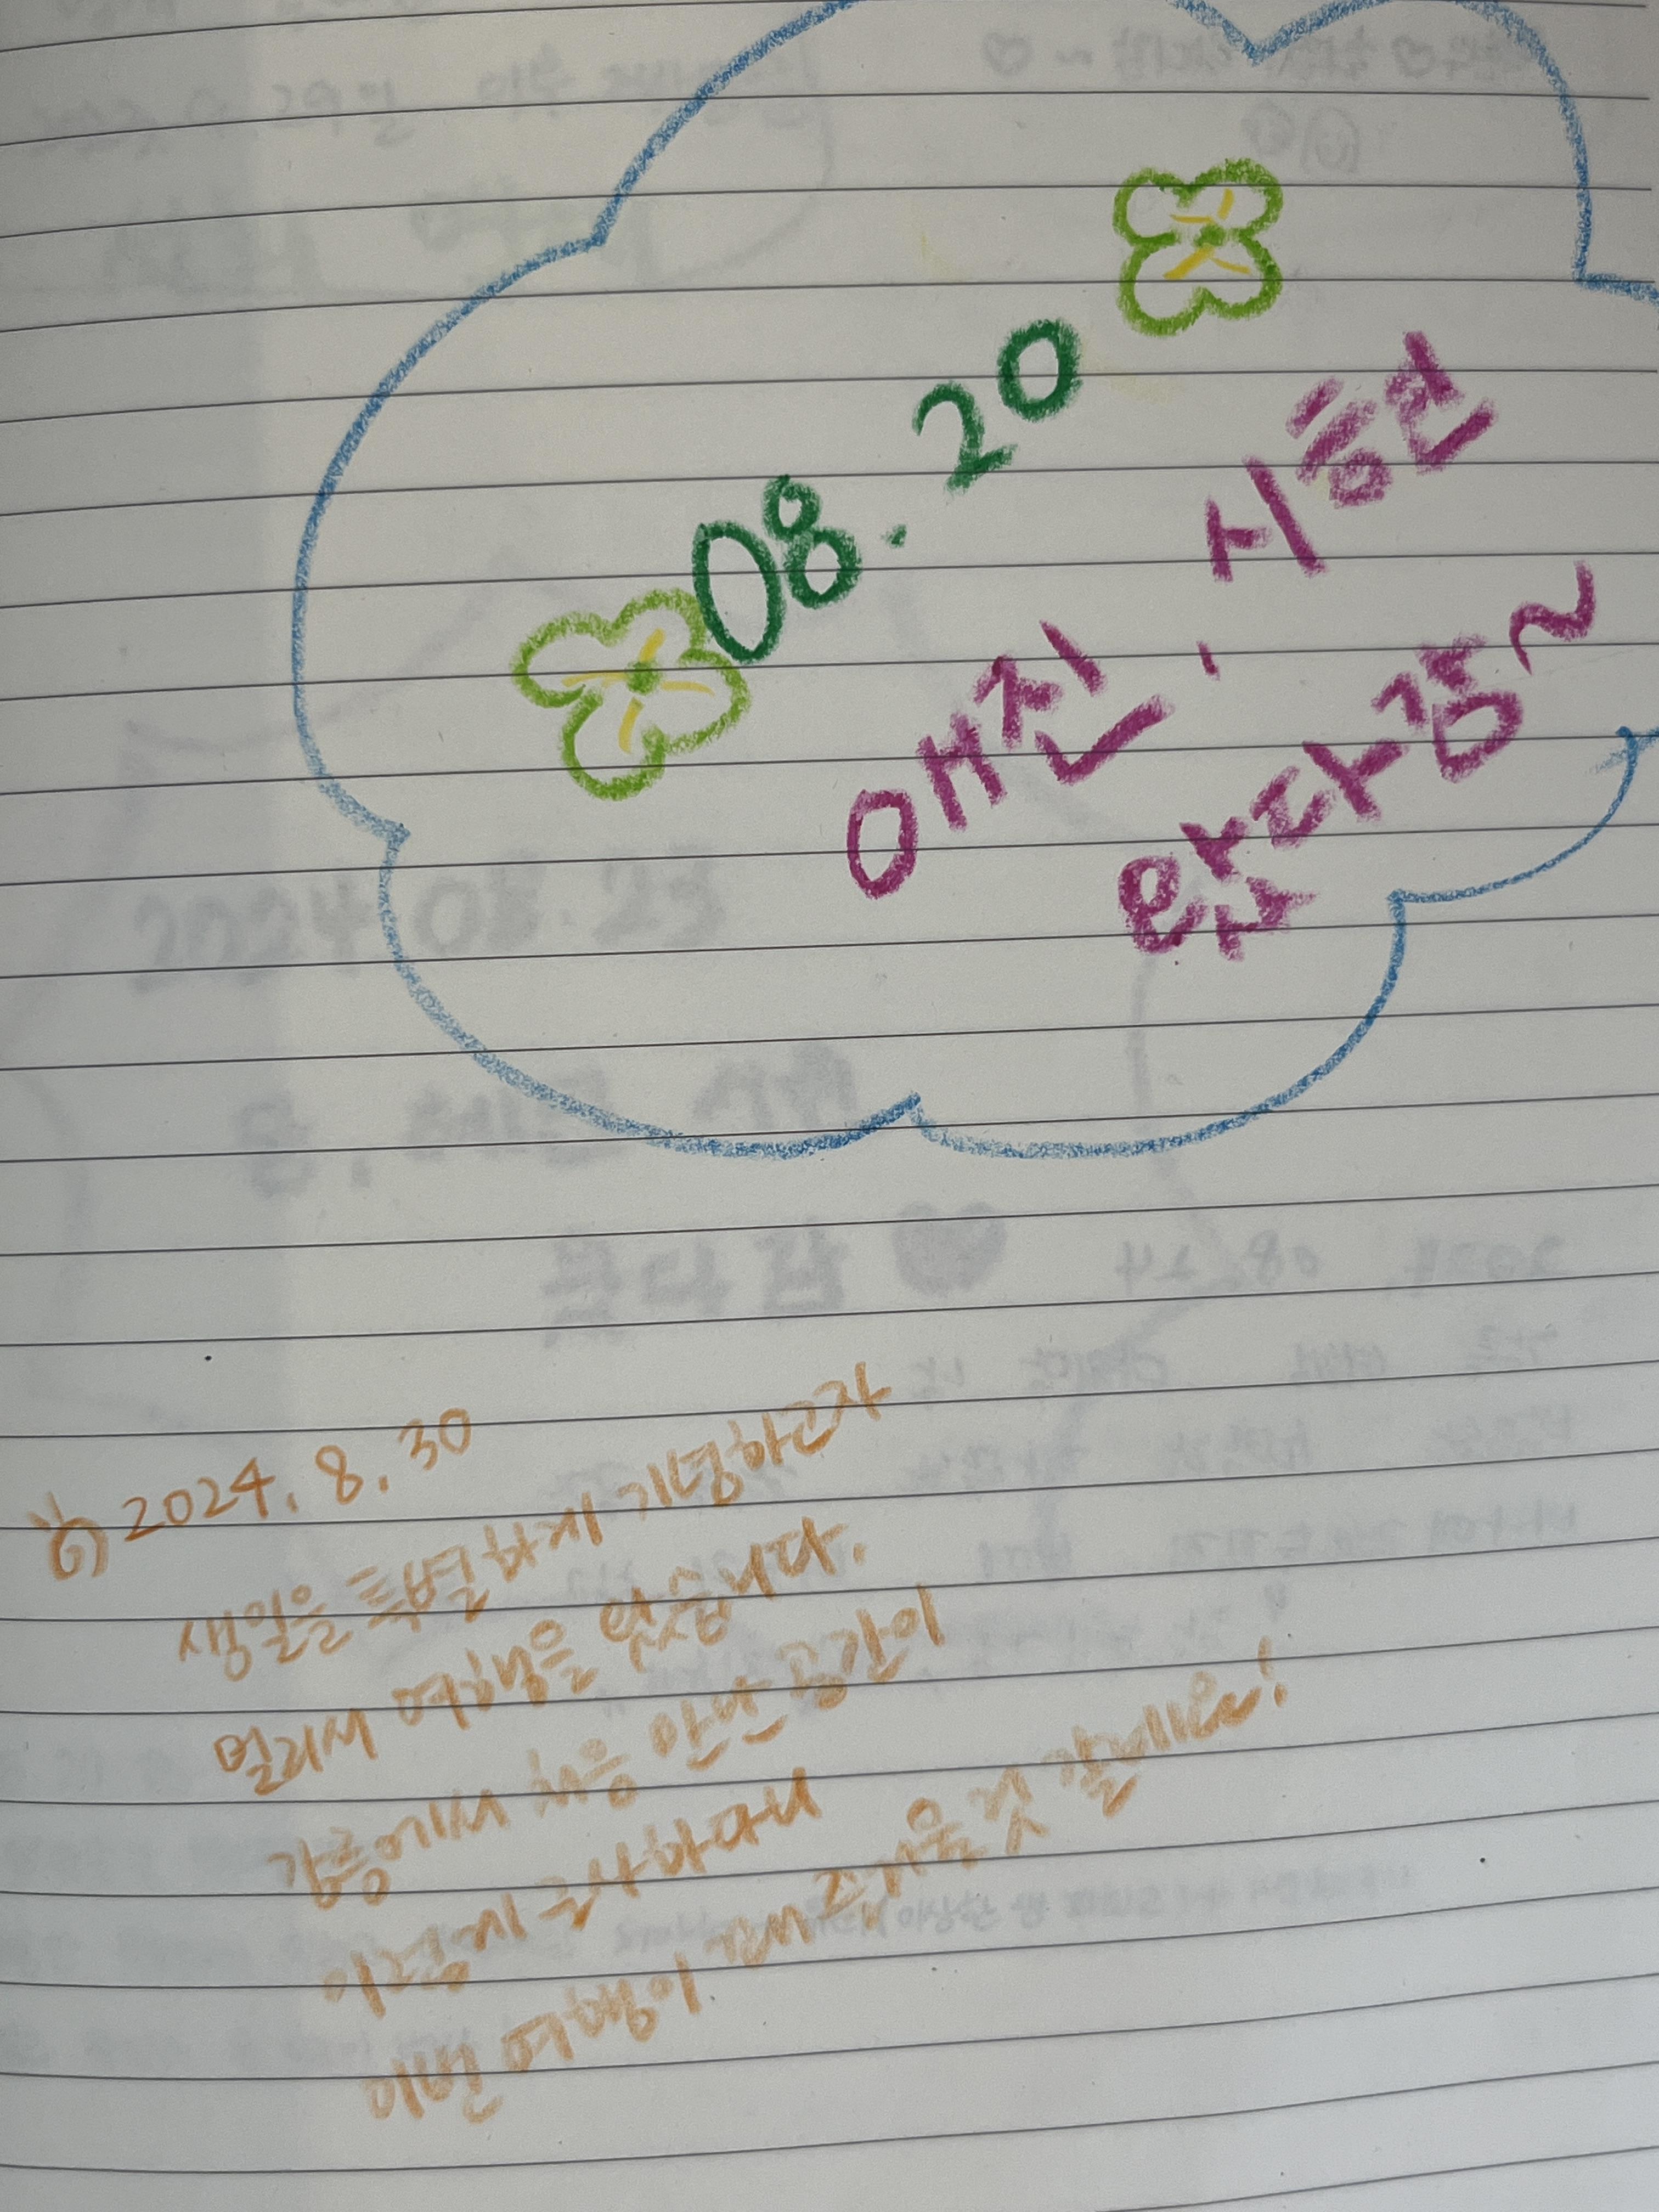 08.20
애진, 시현
왔다감~
2024. 8. 30
생일을 특별하게 기념하고자
멀리서 여행을 왔습니다.
강릉에서 처음 만난 공간이
이렇게 근사하다니
이번 여행이 꽤 즐거울 것 같네요!